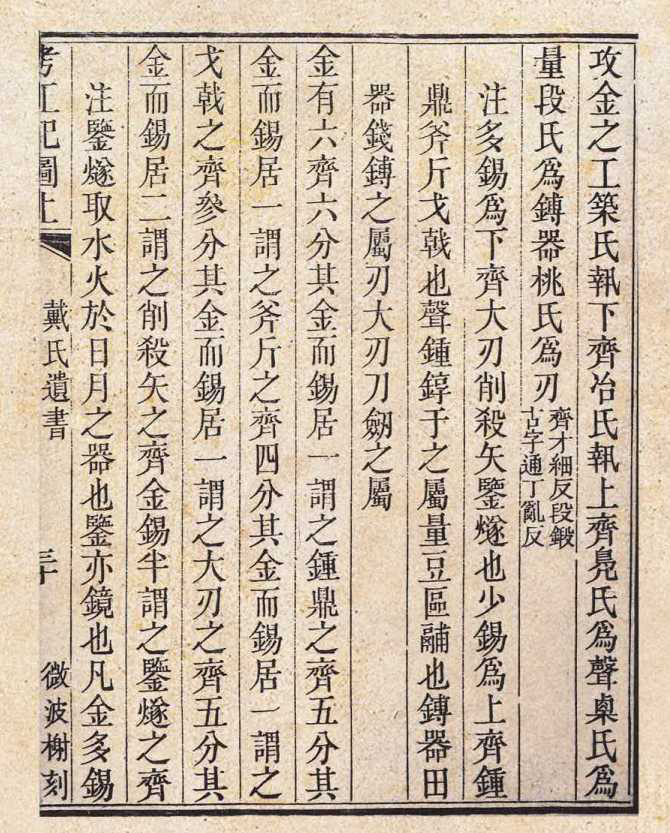 攻金之工築氏執下齊冶氏執上齊鳧氏爲聲㮚氏爲
量段氏爲鎛器桃氏爲刃
齊才細反段鍛
古字通丁亂反
注多錫爲下齊大刃削殺矢鑒燧也少錫爲上齊鍾
鼎斧斤戈戟也聲鍾錞于之屬量豆區鬴也鎛器田
器錢鎛之屬刃大刃刀劒之屬
金有六齊六分其金而錫居一謂之鍾鼎之齊五分其
金而錫居一謂之斧斤之齊四分其金而錫居一謂之
戈戟之齊參分其金而錫居一謂之大刃之齊五分其
金而錫居二謂之削殺矢之齊金錫半謂之鑒燧之齊
注鑒燧取水火於日月之器也鑒亦鏡也凡金多錫
考工記圖上
戴氏遺書
三十
微波榭刻